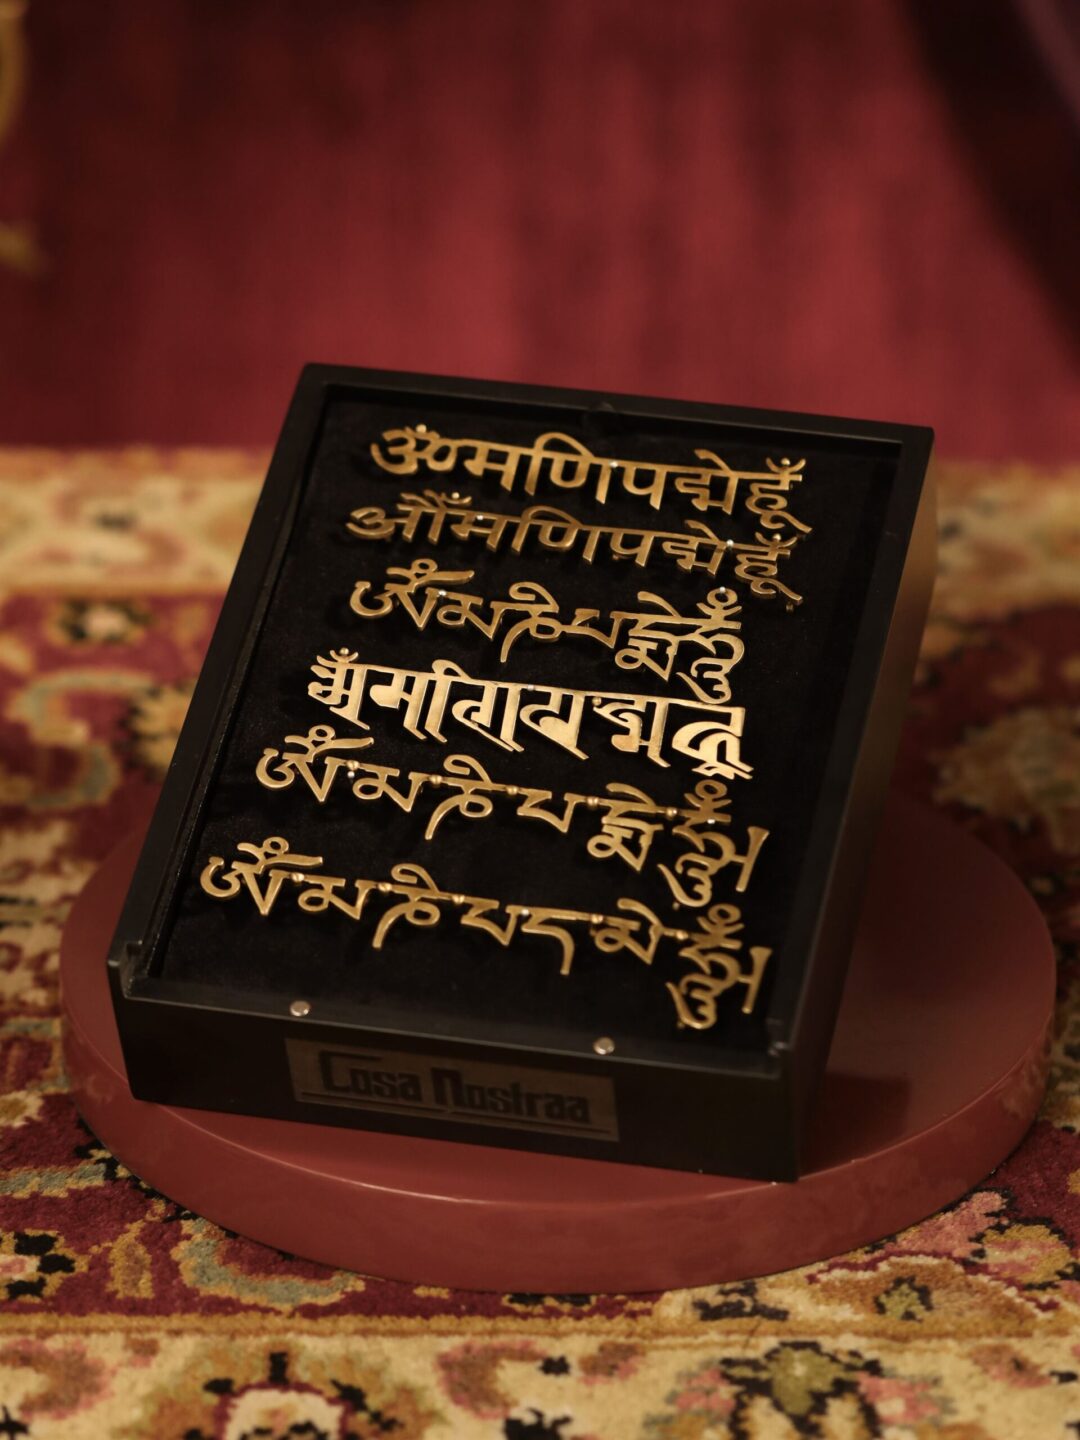 ॐमणिपद्मेहूँ
ओँमणिपद्मेहूँ
ཨོཾམཎིཔདྨེཧཱུྃ
ཨོཾ་མ་ཎི་པ་དྨེ་ཧཱུྃ།
ཨོཾ་མ་ཎི་པ་ད་མེ་ཧཱུྃ།
Cosa Nostraa